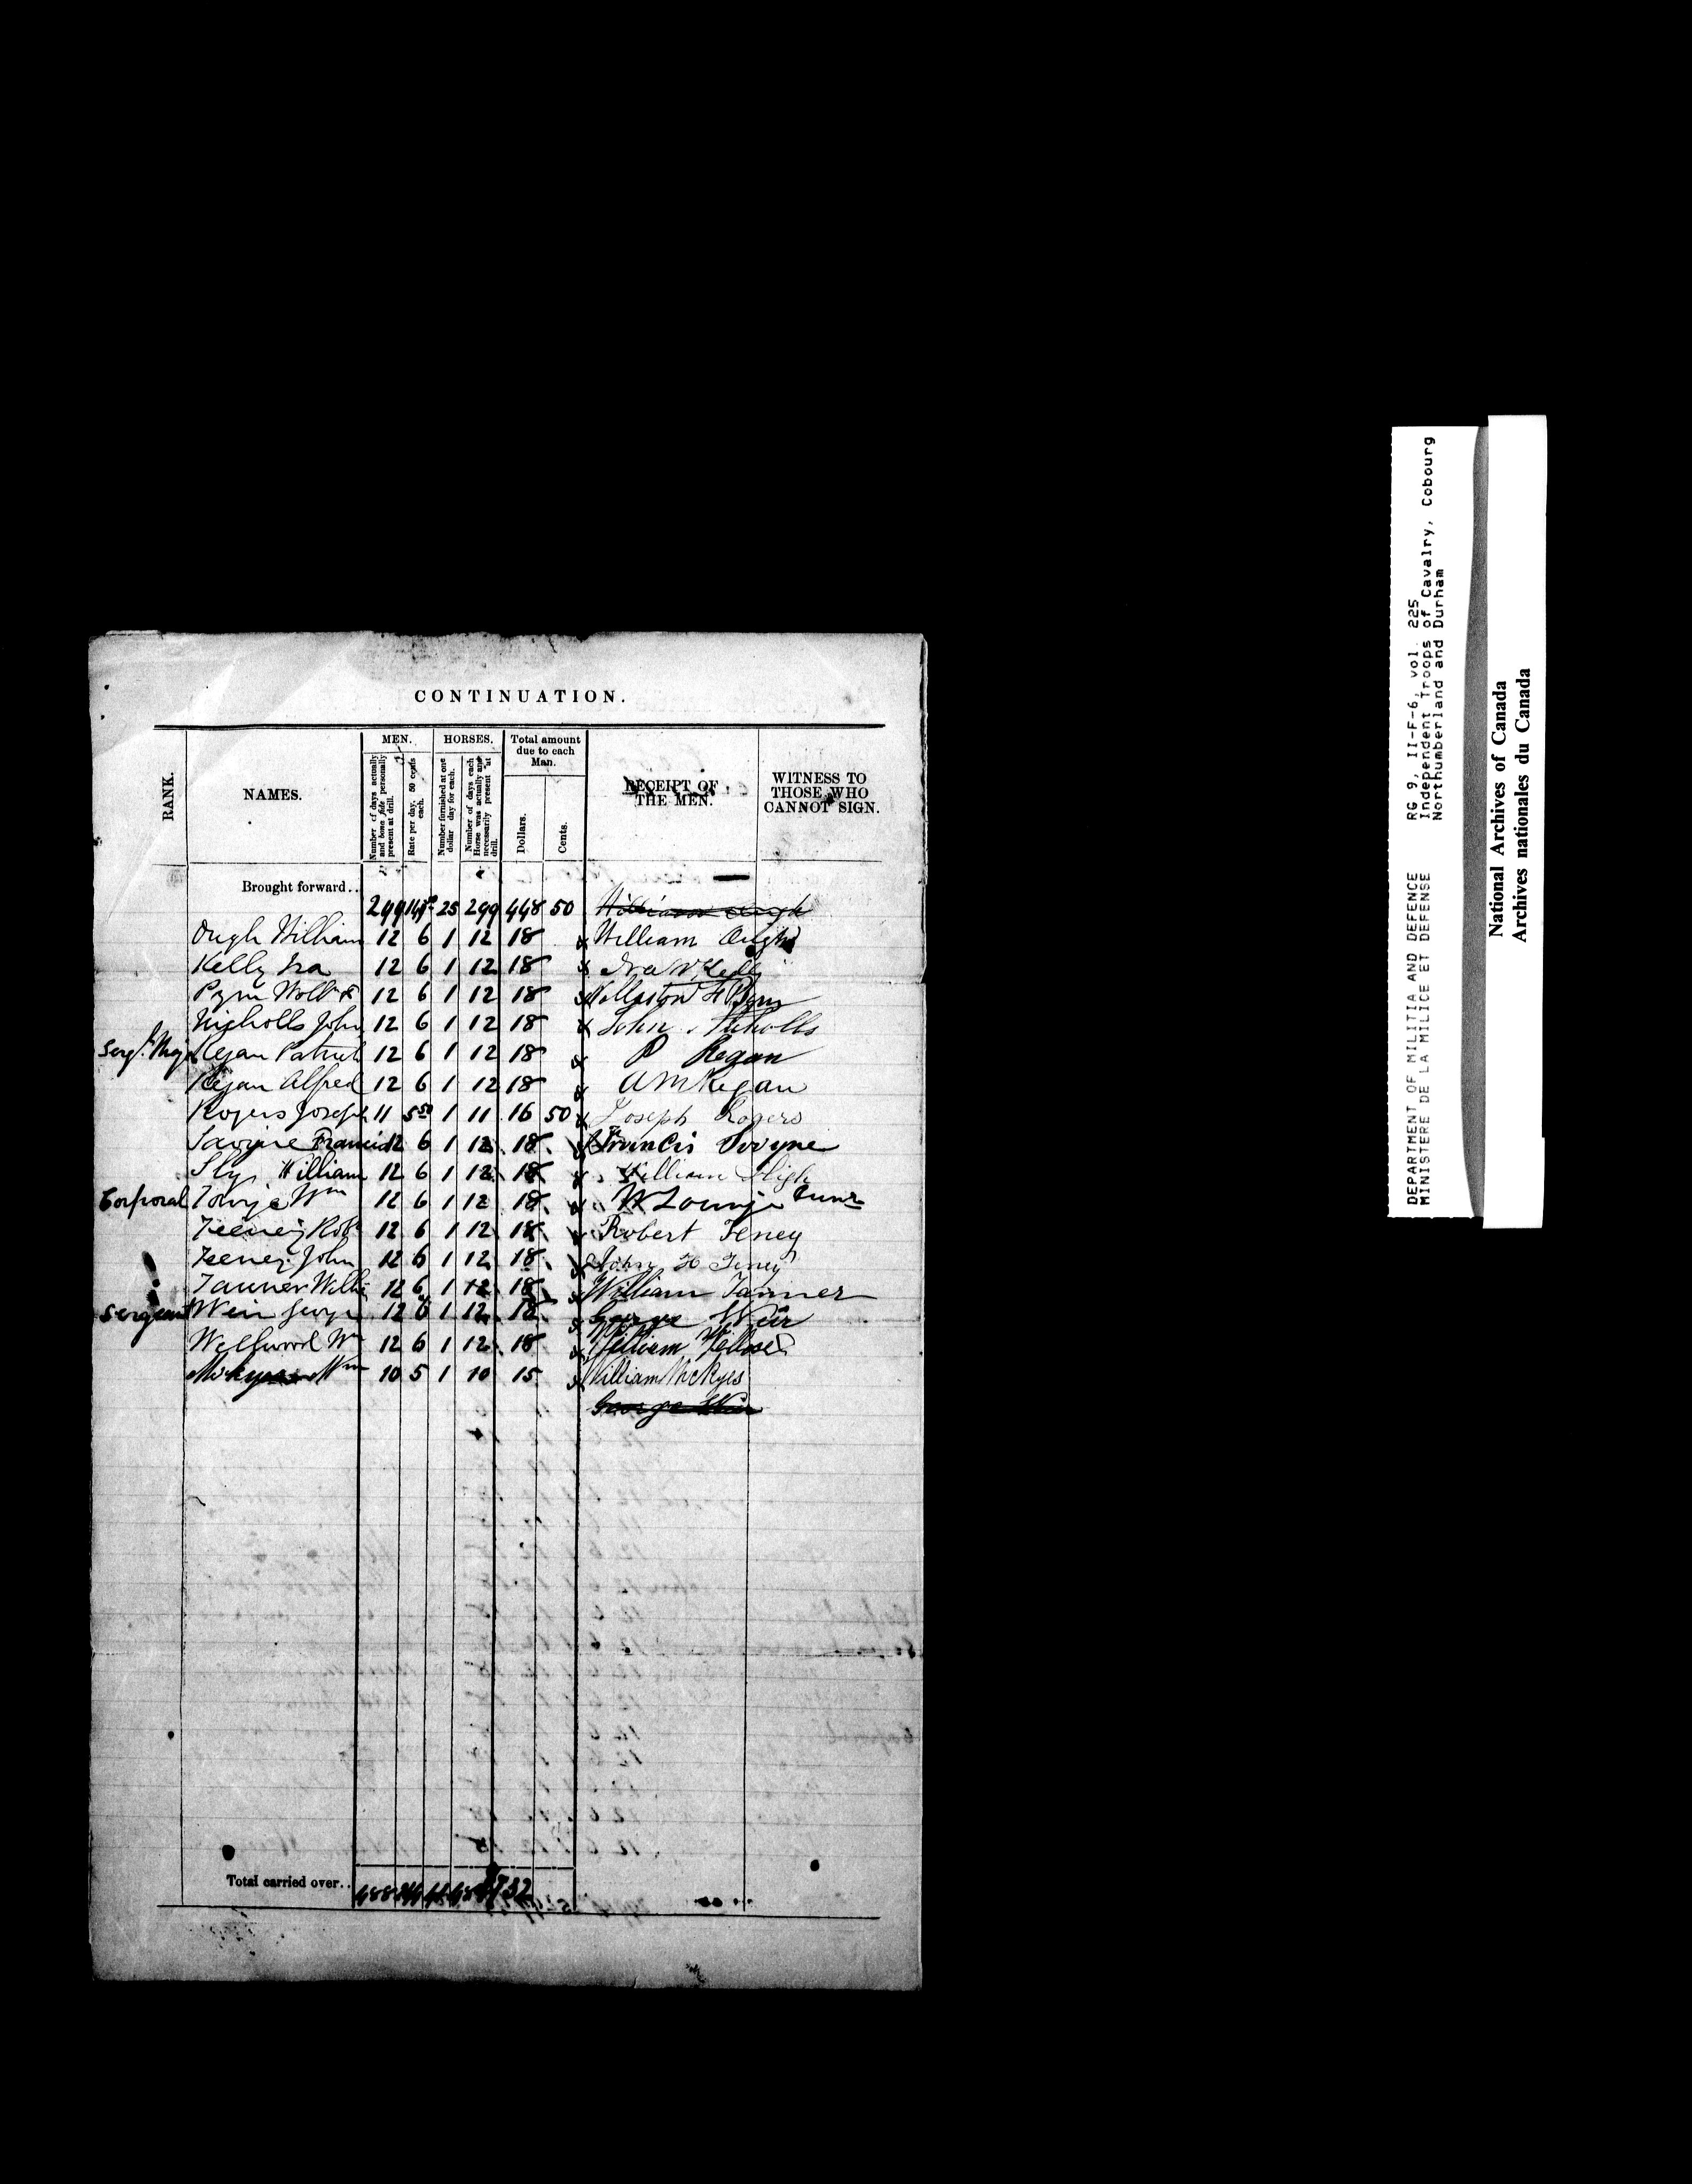 CONTINUATION.
RANK. NAMES. MEN. HORSES. Total amount due to each Man. RECEIPT OF THE MEN. WITNESS TO THOSE WHO CANNOT SIGN.
Number of days actually and bona fide personally present at drill. Rate per day, 50 cents each. Number furnished at one dollar day for each. Number of days each Horse was actually and necessarily present at drill. Dollars. Cents.
Brought forward..
299 149 50 25 299 448 50
Ough William 12 6 1 12 18 x William Ough
Kelly Ira 12 6 1 12 18 x Ira W Kelly
Pym 12 6 1 12 18 x
Nicholls John 12 6 1 12 18 x John Nicholls
Sergt. Maj Regan Patrick 12 6 1 12 18 x P Regan
Regan Alfred 12 6 1 12 18 x A M Regan
Rogers Joseph 11 5 50 1 11 16 50 x Joseph Rogers
Francis 12 6 1 12 18 x Francis
Sly William 12 6 1 12 18 x William
Corporal Wm 12 6 1 12 18 x W Lounje Junr
Feeney Robt 12 6 1 12 18 x Robert Feney
Feeney John 12 6 1 12 18 x John H Feney
Tanner Willm 12 6 1 12 18 x William Tanner
Sergeant Weir George 12 6 1 12 18 x George Weir
Wellwood Wm 12 6 1 12 18 x William
Wm 10 5 1 10 15 x William McKyes
George Weir
Total carried over..
DEPARTMENT OF MILITIA AND DEFENCE RG 9, II-F-6, vol. 225
MINISTERE DE LA MILICE ET DEFENSE Independent Troops of Cavalry, Cobourg
Northumberland and Durham
National Archives of Canada
Archives nationales du Canada